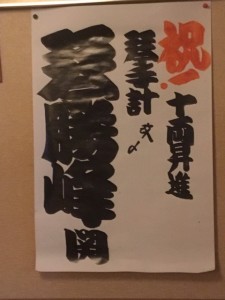 祝!
十両昇進
琴手計改〆
琴勝峰関